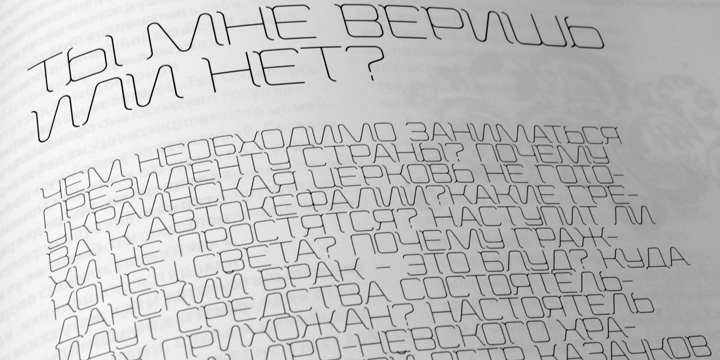 ТЫ МНЕ ВЕРИШЬ
ИЛИ НЕТ?
ЧЕМ НЕОБХОДИМО ЗАНИМАТЬСЯ
ПРЕЗИДЕНТУ СТРАНЫ? ПОЧЕМУ
УКРАИНСКАЯ ЦЕРКОВЬ НЕ ГОТО-
ВА К АВТОКЕФАЛИИ?КАКИЕ ГРЕ-
ХИ НЕ ПРОСТЯТСЯ? НАСТУПИТ ЛИ
КОНЕЦ СВЕТА? ПОЧЕМУ ГРАЖ-
ДАНСКИЙ БРАК – ЭТО БЛУД? КУДА
ИДУТ СРЕДСТВА СОСТОЯТЕЛЬ-
ПРИХОЖАН? НАСТОЯТЕЛЬ
НЕВСКОГО ХРА-
КАЗАЧКОВ